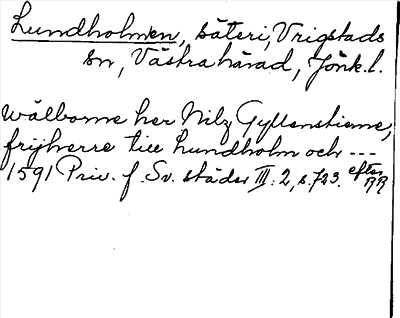 Lundholmen, säteri, Vrigstads
sn, Västra härad, Jönk. l.
wälborne her Nilz Gyllenstierne,
frijherre till Lundholm och ---
1591 Priv. f. Sv. städer III: 2, s. 723. efter RR